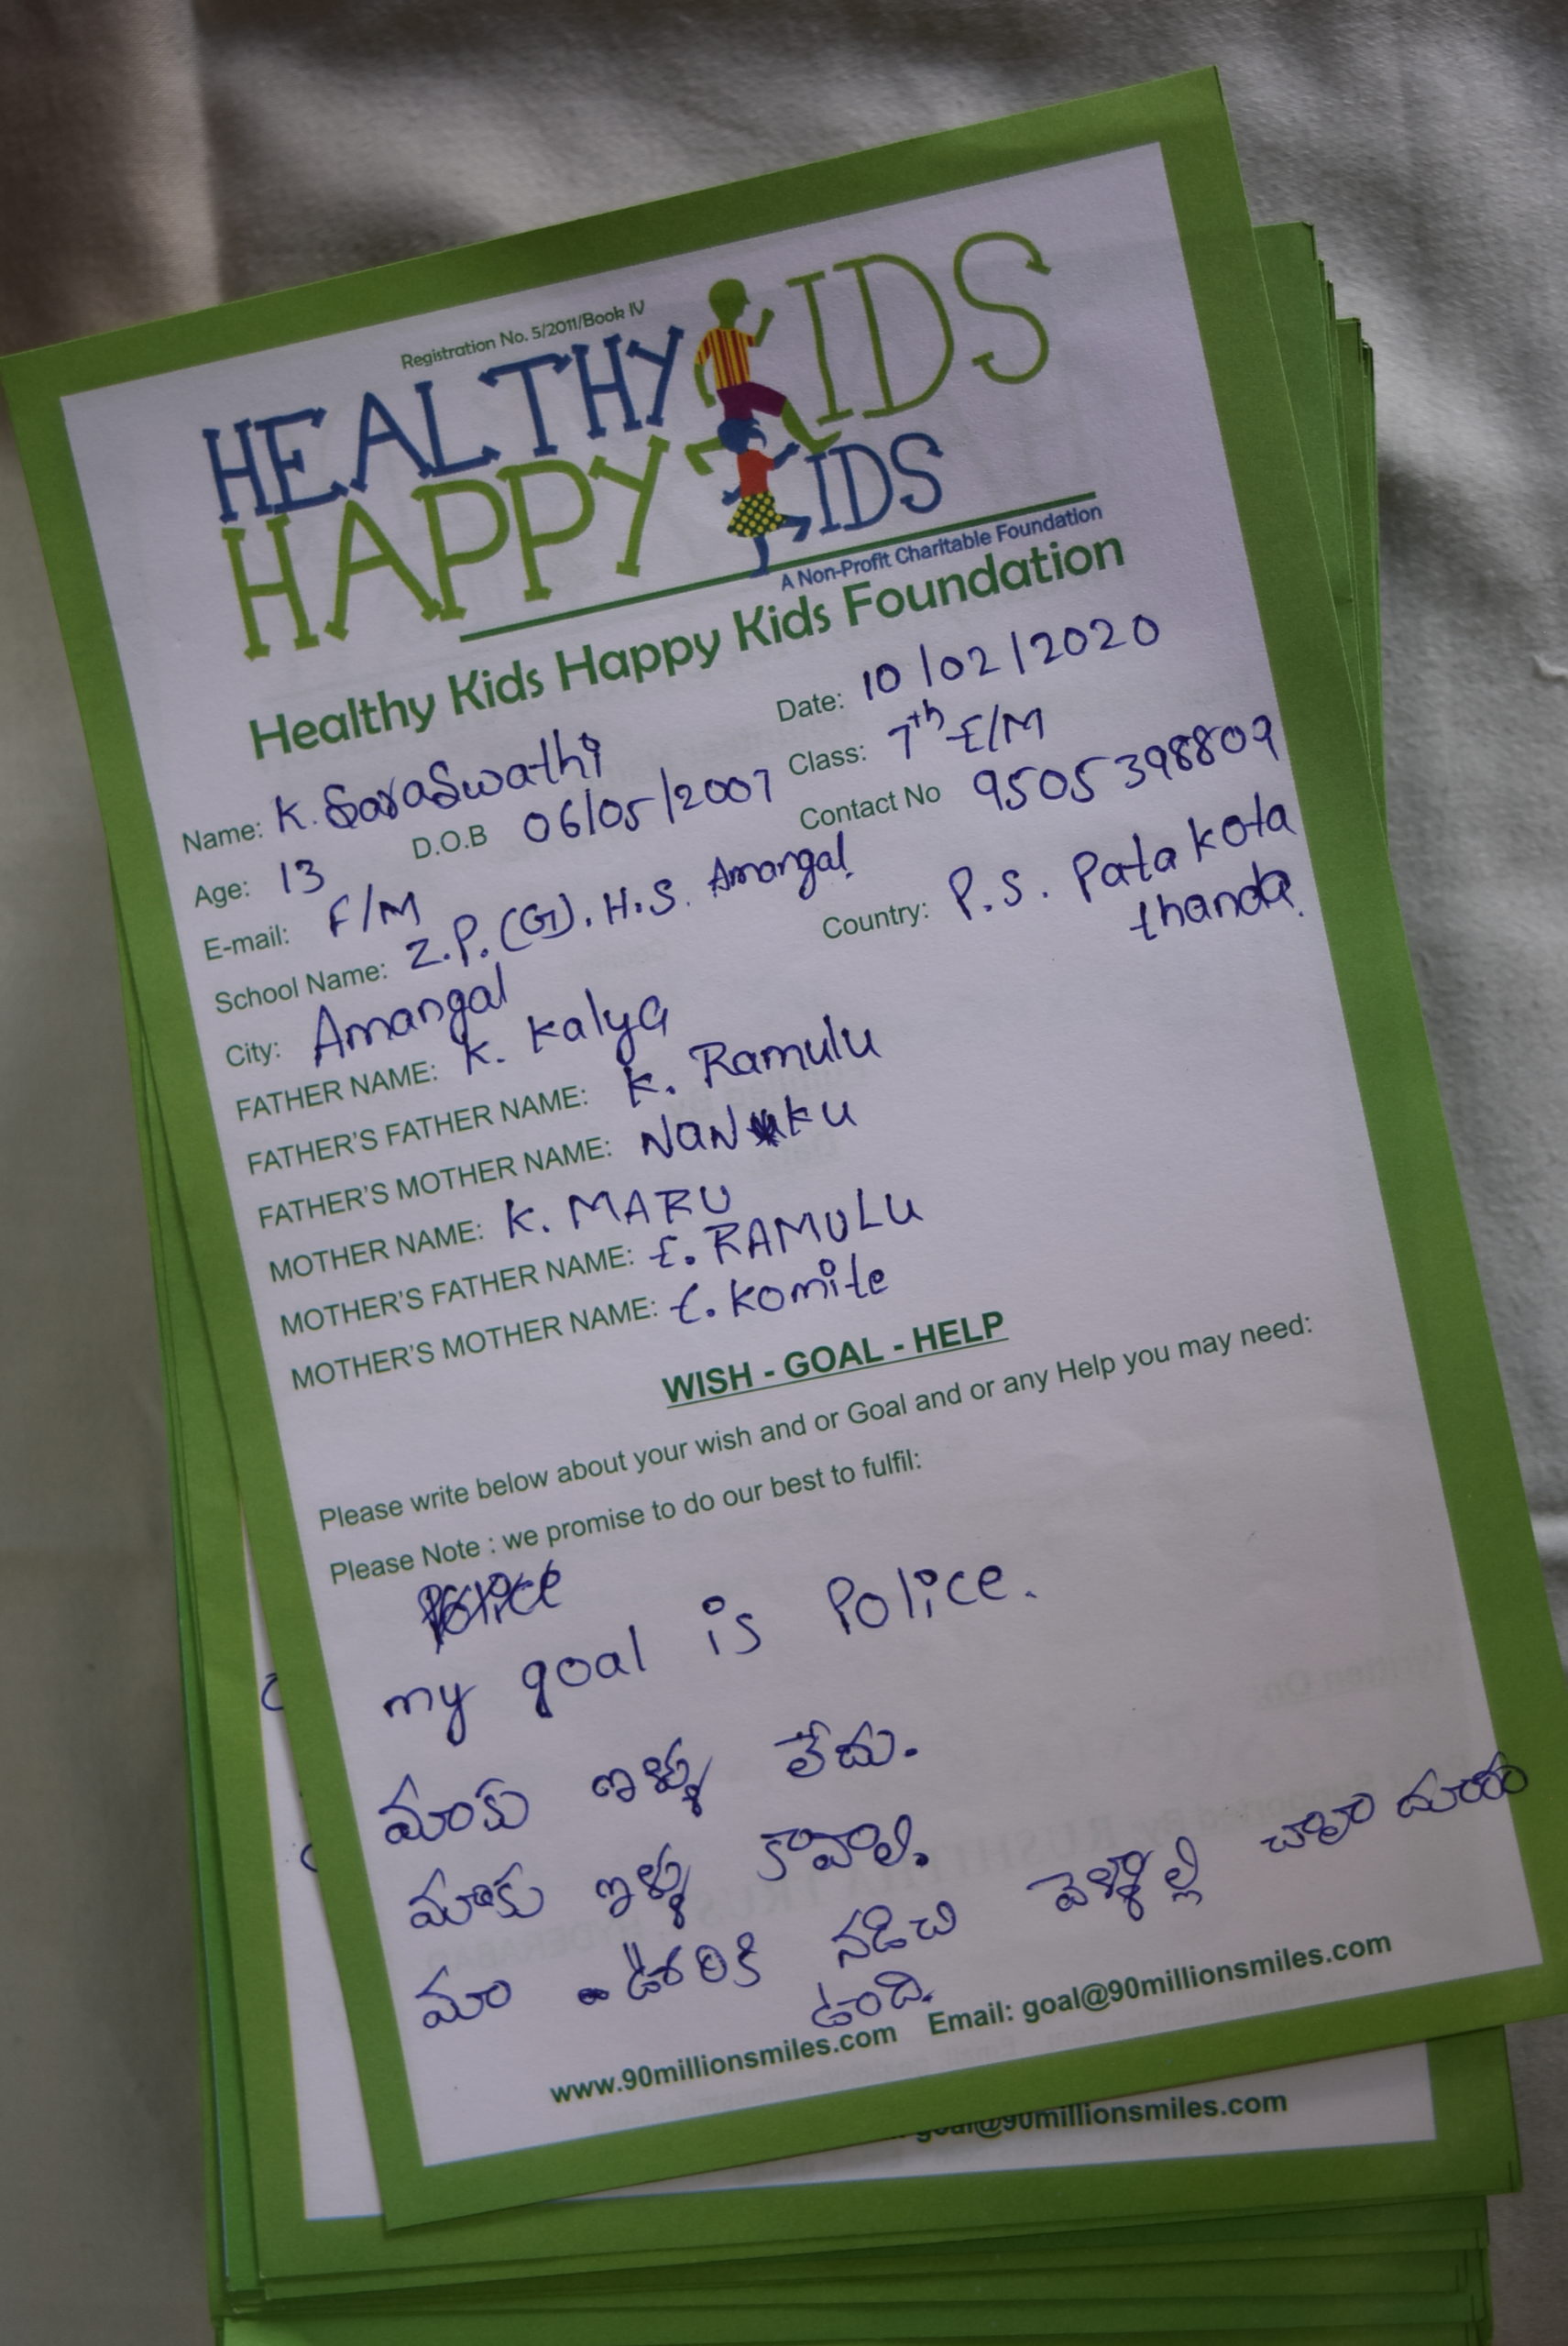 Registration No. 5/2011/Book IV
HEALTHY KIDS
HAPPY KIDS
A Non-Profit Charitable Foundation
Healthy Kids Happy Kids Foundation
Date: 10/02/2020
Name: K. SaraSwathi
Class: 7th E/M
Age: 13 D.O.B 06/05/2007
Contact No 9505398809
E-mail: F/M
School Name: Z.P.(G). H.S. Amangal.
Country: P.S. Patakota
thanda.
City: Amangal
FATHER NAME: K. Kalya
FATHER'S FATHER NAME: K. Ramulu
FATHER'S MOTHER NAME: NaNku
MOTHER NAME: K. MARU
MOTHER'S FATHER NAME: E. RAMULU
MOTHER'S MOTHER NAME: E. Komite
WISH - GOAL - HELP
Please write below about your wish and or Goal and or any Help you may need:
Please Note : we promise to do our best to fulfil:
Police
my goal is Police.
మాకు ఇళ్ళు లేదు.
మాకు ఇళ్ళు కావాలి.
మా ఊరికి నడిచి చాలా దూరం
ఉంది.
www.90millionsmiles.com Email: goal@90millionsmiles.com
goal@90millionsmiles.com